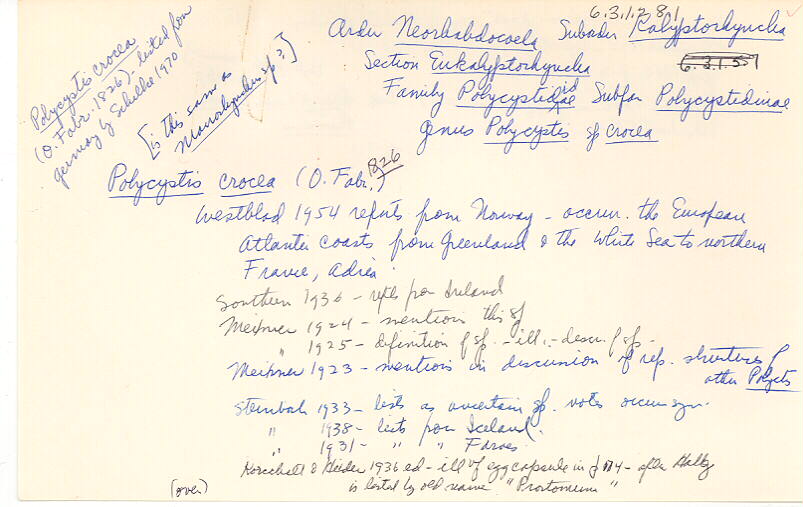 6.3.1.2.8.1
Order Neorhabdocoela Suborder Kalyptorhynchia
Section Eukalyptorhynchia 6.3.1.5.5
Family Polycystididae Subfam Polycystidinae
genus Polycystis sp crocea
Polycystis crocea
(O. Fabr. 1826) - listed from
Germany by Schilke 1970
[is this same as
Macrorhynchus sp?]
Polycystis crocea (O. Fabr., 1826)
Westblad 1954 reports from Norway - occurr. the European
Atlantic coasts from Greenland & the White Sea to northern
France, Adria.
Southern 1936 - repts from Ireland
Meixner 1924 - mentions this sp
" 1925 - definition of sp. - ill. - descrip of sp -
Meixner 1923 - mentions in discussion of rep. structures of
other Polycysts
Steinböck 1933 - lists as uncertain sp. notes occurr syn.
" 1938 - lists from Iceland.
" 1931 - " " Faroes
Korschelt & Heider 1936 ed - ill of egg capsule in f 174 - after Hallez
is listed by old name "Prostomum"
(over)